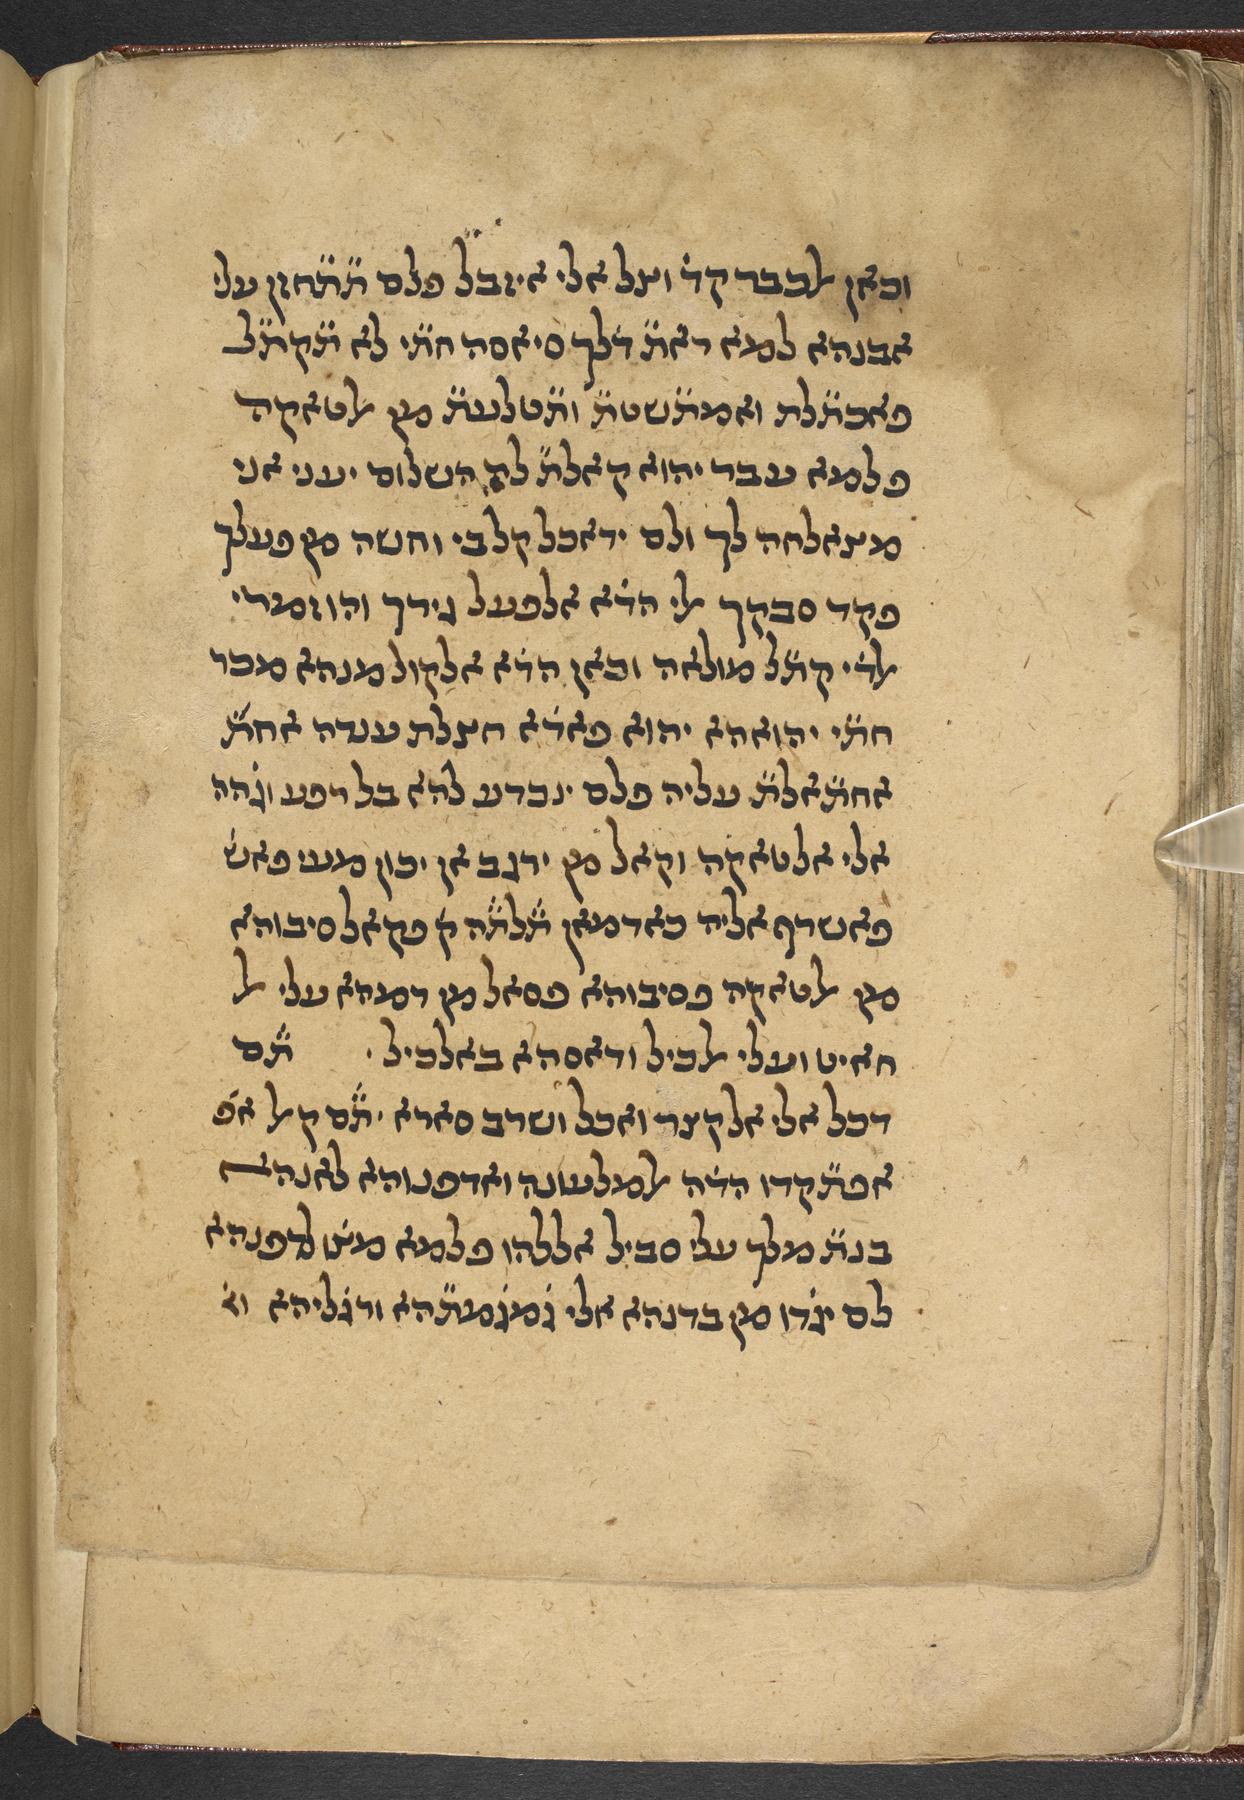 וכאן לכבר קד וצל אלי איזבל פלם תתחזן עלי
אבנהא למא ראת דלך סיאסה חתי לא תקתל
פאכתלת ואמתשטת ותטלעת מן לטאקה
פלמא עבר יהוא קאלת לה השלום יעני אני
מצאלחה לך ולם ידאכל קלבי וחשה מן פעלך
פקד סבקך לי הדא אלפעל גירך והו זמרי
לדי קתל מולאה וכאן הדא אלקול מנהא מכר
חתי יהואהא יהוא פאדא חצלת ענדה אחת
אחתאלת עליה פלם ינכדע להא בל רפע וגהה
אלי אלטאקה וקאל מן ירגב אן יכון מעי פאש
פאשרף אליה כאדמאן תלתה ק פקאל סיבוהא
מן לטאקה פסיבוהא פסאל מן דמהא עלי ל
חאיט ועלי לכיל ודאסהא באלכיל . תם
דכל אלי אלקצר ואכל ושרב סארא יתם קל אפ
אפתקדו הדה למלעונה ואדפנוהא לאנהא
בנת מלך עלי סביל אללהו פלמא מצו לדפנהא
לם יגדו מן בדנהא אלי גמגמתהא ורגליהא וי